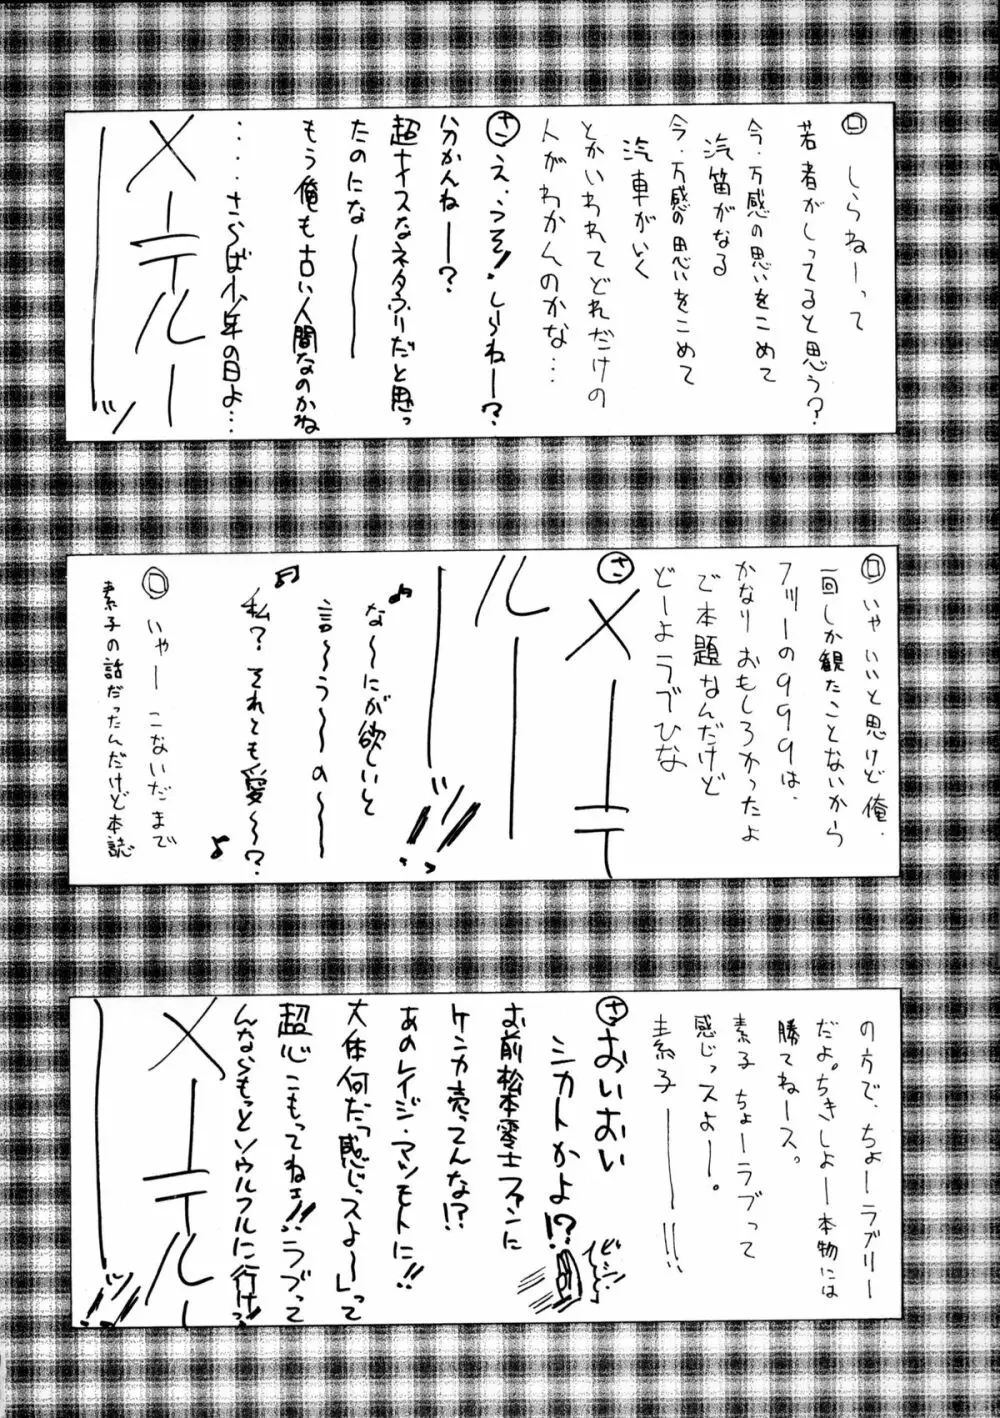 ロ しらねーって
若者がしってると思う?
今・万感の思いをこめて
汽笛がなる
今・万感の思いをこめて
汽車がいく
とかいわれてどれだけの
人がわかんのかな…
さ え、うそ!しらねー?
分かんねー?
超ナイスなネタふりだと思っ
たのにな〜
もう俺も古い人間なのかね
・・・さらば少年の日よ…
メーテルー
ーッ
ロ いや いいと思けど俺、
一回しか観たことないから
フツーの999は、
かなりおもしろかったよ
で本題なんだけど
どーよラブひな
さ
メーテ
ルー
ーッ!!
♪な〜にが欲しいと
言〜う〜の〜
♫私?それとも愛〜?♪
ロ いやー こないだまで
素子の話だったんだけど本誌
の方で、ちょーラブリー
だよ。ちきしょー本物には
勝てねース。
素子ちょーラブって
感じっスよー。
素子ーーー!!
さ おいおい
シカトかよ!?
ビシッ
お前松本零士ファンに
ケンカ売ってんな!?
あのレイジ・マツモトに!!
大体何だ「感じっスよ〜」って
超心こもってねェ!!ラブって
んならもっとソウルフルに行けっ!!
メーテルー
ーッ!!